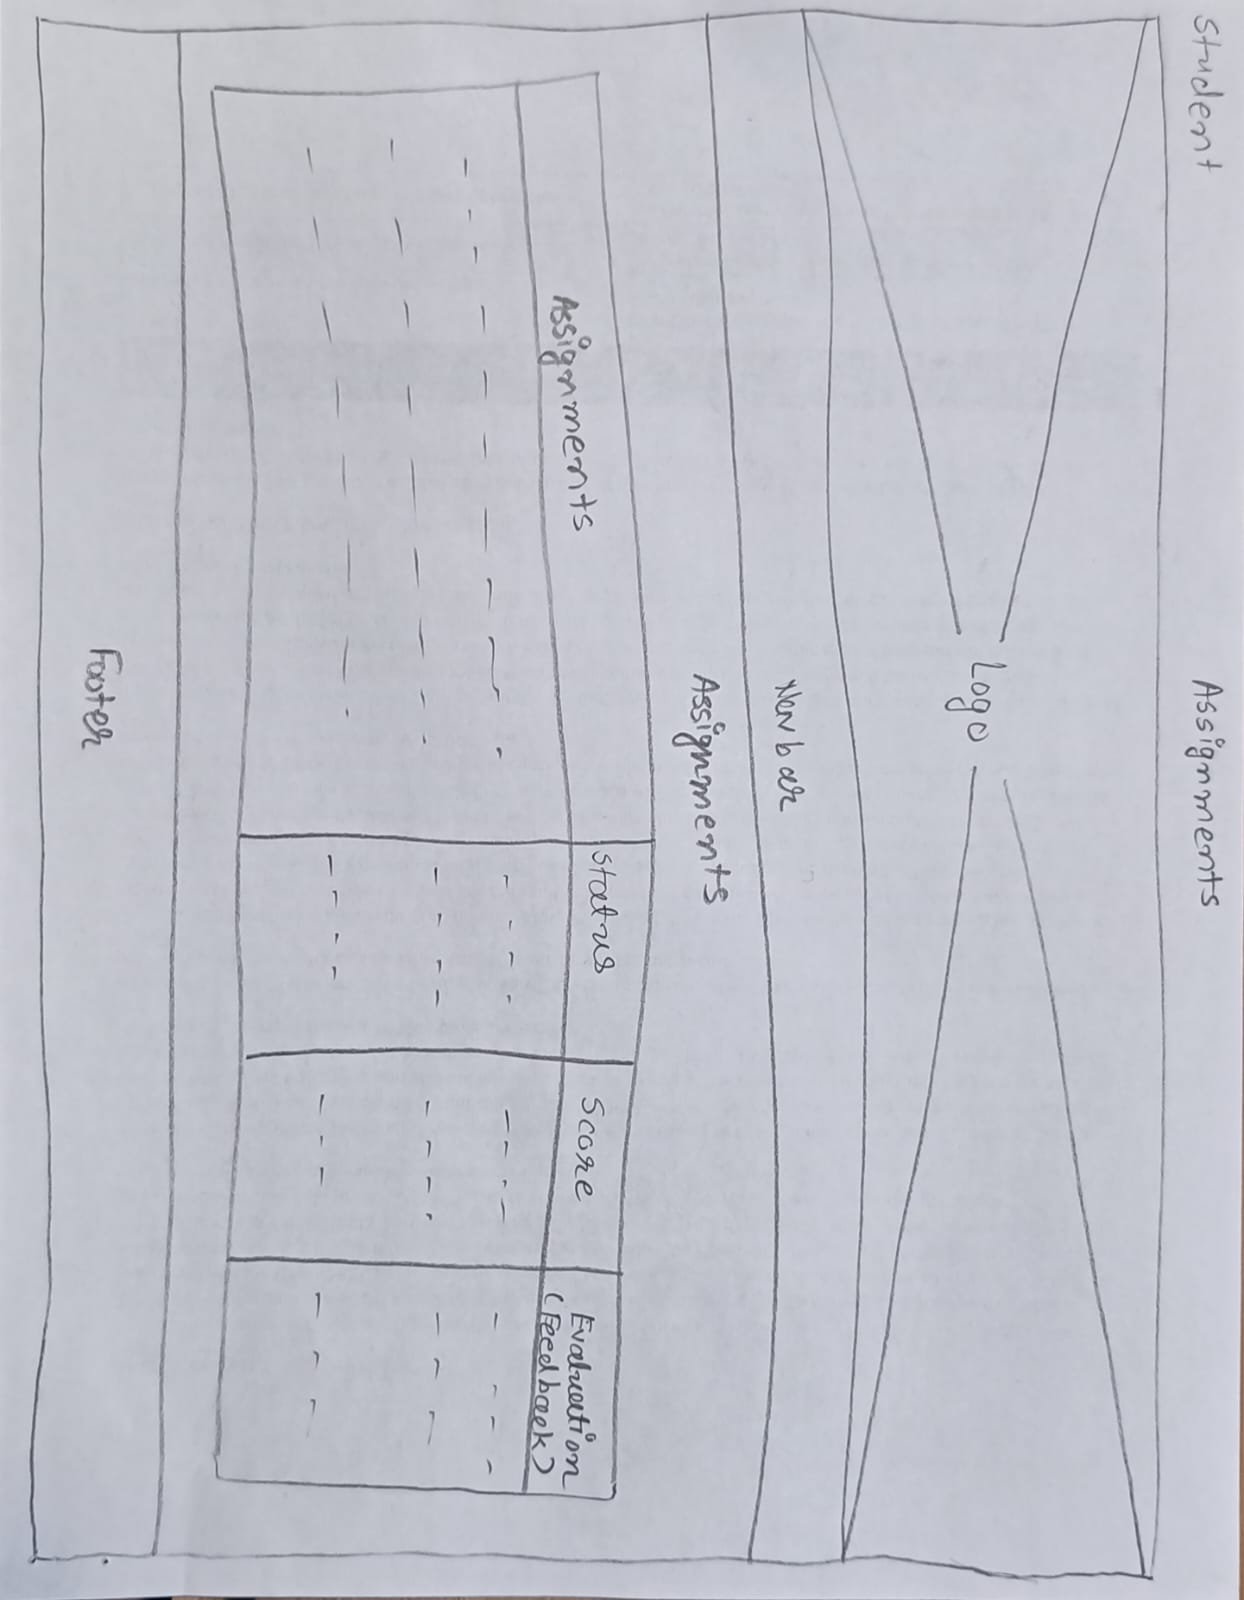 Student
Assignments
Logo
Navbar
Assignments
Assignments
Status
Score
Evaluation
(Feedback)
Footer